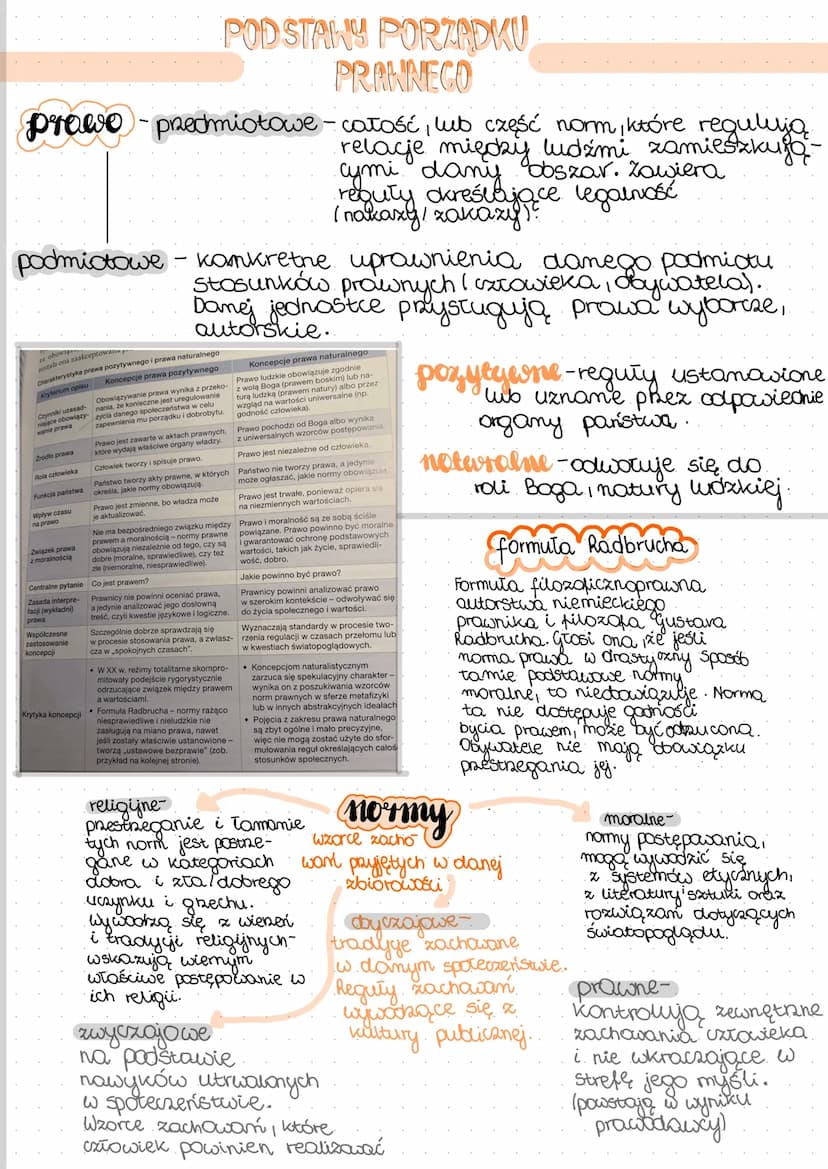 PODSTAWY PORZĄDKU
PRAWNEGO
prawo - przedmiotowe - całość, lub część norm, które regulują
relacje między ludźmi zamieszkują-
cymi dany obszar. Zawiera
reguły określające legalność
(nakazy/zakazy).
podmiotowe - konkretne uprawnienia danego podmiotu
stosunków prawnych (człowieka, obywatela).
Danej jednostce przysługują prawa wyborcze,
autorskie.
została ona zaakceptowana
Charakterystyka prawa pozytywnego i prawa naturalnego
Kryterium opisu
Koncepcje prawa pozytywnego
Koncepcje prawa naturalnego
Czynniki uzasad-
niające obowiązy-
wanie prawa
Obowiązywanie prawa wynika z przeko-
nania, że konieczne jest uregulowanie
życia danego społeczeństwa w celu
zapewnienia mu porządku i dobrobytu.
Prawo ludzkie obowiązuje zgodnie
z wolą Boga (prawem boskim) lub na-
turą ludzką (prawem natury) albo przez
wzgląd na wartości uniwersalne (np.
godność człowieka).
Źródło prawa
Prawo jest zawarte w aktach prawnych,
które wydają właściwe organy władzy.
Prawo pochodzi od Boga albo wynika
z uniwersalnych wzorców postępowania.
Rola człowieka
Człowiek tworzy i spisuje prawo.
Prawo jest niezależne od człowieka.
Funkcja państwa
Państwo tworzy akty prawne, w których
określa, jakie normy obowiązują.
Państwo nie tworzy prawa, a jedynie
może ogłaszać, jakie normy obowiązują.
Wpływ czasu
na prawo
Prawo jest zmienne, bo władza może
je aktualizować.
Prawo jest trwałe, ponieważ opiera się
na niezmiennych wartościach.
Związek prawa
z moralnością
Nie ma bezpośredniego związku między
prawem a moralnością – normy prawne
obowiązują niezależnie od tego, czy są
dobre (moralne, sprawiedliwe), czy też
złe (niemoralne, niesprawiedliwe).
Prawo i moralność są ze sobą ściśle
powiązane. Prawo powinno być moralne
i gwarantować ochronę podstawowych
wartości, takich jak życie, sprawiedli-
wość, dobro.
Centralne pytanie
Co jest prawem?
Jakie powinno być prawo?
Zasada interpre-
tacji (wykładni)
prawa
Prawnicy nie powinni oceniać prawa,
a jedynie analizować jego dosłowną
treść, czyli kwestie językowe i logiczne.
Prawnicy powinni analizować prawo
w szerokim kontekście – odwoływać się
do życia społecznego i wartości.
Współczesne
zastosowanie
koncepcji
Szczególnie dobrze sprawdzają się
w procesie stosowania prawa, a zwłasz-
cza w „spokojnych czasach”.
Wyznaczają standardy w procesie two-
rzenia regulacji w czasach przełomu lub
w kwestiach światopoglądowych.
Krytyka koncepcji
• W XX w. reżimy totalitarne skompro-
mitowały podejście rygorystycznie
odrzucające związek między prawem
a wartościami.
• Formuła Radbrucha – normy rażąco
niesprawiedliwe i nieludzkie nie
zasługują na miano prawa, nawet
jeśli zostały właściwie ustanowione –
tworzą „ustawowe bezprawie” (zob.
przykład na kolejnej stronie).
• Koncepcjom naturalistycznym
zarzuca się spekulacyjny charakter –
wynika on z poszukiwania wzorców
norm prawnych w sferze metafizyki
lub w innych abstrakcyjnych ideałach
• Pojęcia z zakresu prawa naturalnego
są zbyt ogólne i mało precyzyjne,
więc nie mogą zostać użyte do sfor-
mułowania reguł określających całoś
stosunków społecznych.
pozytywne - reguły ustanowione
lub uznane przez odpowiednie
organy państwa.
naturalne - odwołuje się do
roli Boga, natury ludzkiej.
formuła Radbrucha
Formuła filozoficznoprawna
autorstwa niemieckiego
prawnika i filozofa Gustava
Radbrucha. Głosi ona, że jeśli
norma prawa w drastyczny sposób
łamie podstawowe normy
moralne, to nieobowiązuje. Norma
ta nie dostępuje godności
bycia prawem, może być odrzucona.
Obywatele nie mają obowiązku
przestrzegania jej.
normy
wzorce zacho-
wań przyjętych w danej
zbiorowości
religijne-
przestrzeganie i łamanie
tych norm jest postrze-
gane w kategoriach
dobra i zła/dobrego
uczynku i grzechu.
Wywodzą się z wierzeń
i tradycji religijnych-
wskazują wiernym
właściwe postępowanie w
ich religii.
moralne-
normy postępowania,
mogą wywodzić się
z systemów etycznych,
z literatury sztuki oraz
rozwiązań dotyczących
światopoglądu.
obyczajowe-
tradycje zachowane
w danym społeczeństwie.
Reguły zachowań,
wywodzące się z
kultury publicznej.
prawne-
kontrolują zewnętrzne
zachowania człowieka
i nie wkraczające w
strefę jego myśli.
(powstają w wyniku
prawodawcy)
zwyczajowe
na podstawie
nawyków utrwalonych
w społeczeństwie.
Wzorce zachowań, które
człowiek powinien realizować